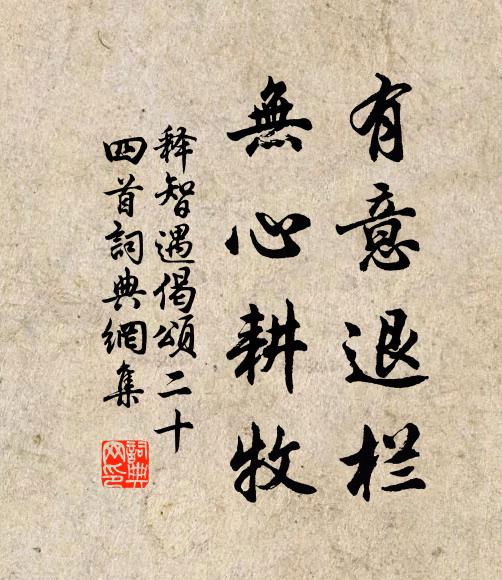 有意退栏
無心耕牧
释智遇偈頌二十
四首詞典網集
詞典
网印